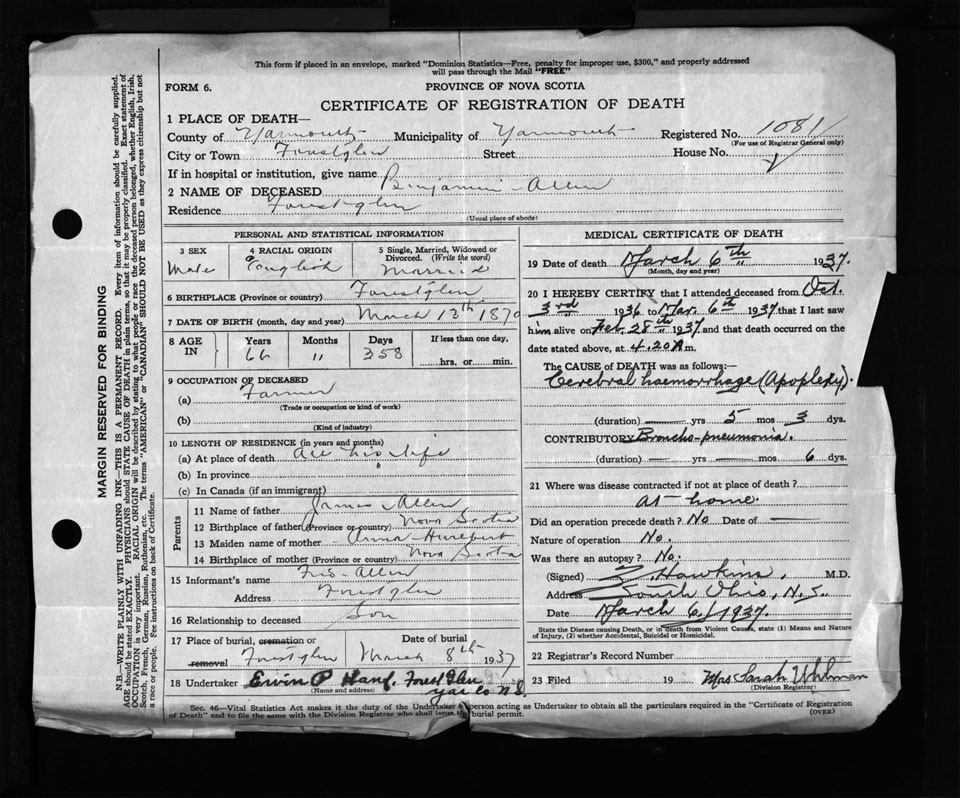 This form if placed in an envelope, marked "Dominion Statistics—Free, penalty for improper use, $300," and properly addressed
will pass through the Mail "FREE"
FORM 6.
PROVINCE OF NOVA SCOTIA
CERTIFICATE OF REGISTRATION OF DEATH
1 PLACE OF DEATH—
County of Yarmouth Municipality of Yarmouth Registered No. 1081
(For use of Registrar General only)
City or Town Forest glen Street House No.
If in hospital or institution, give name
2 NAME OF DECEASED Benjamin Allen
Residence Forest glen
(Usual place of abode)
PERSONAL AND STATISTICAL INFORMATION
3 SEX Male
4 RACIAL ORIGIN English
5 Single, Married, Widowed or Divorced. (Write the word) Married
6 BIRTHPLACE (Province or country) Forest glen
7 DATE OF BIRTH (month, day and year) March 13th 1870
8 AGE IN Years 66 Months 11 Days 358 If less than one day, hrs. or min.
9 OCCUPATION OF DECEASED
(a) Farmer
(Trade or occupation or kind of work)
(b)
(Kind of industry)
10 LENGTH OF RESIDENCE (in years and months)
(a) At place of death all his life
(b) In province
(c) In Canada (if an immigrant)
Parents
11 Name of father James Allen
12 Birthplace of father (Province or country) Nova Scotia
13 Maiden name of mother Anna
14 Birthplace of mother (Province or country) Nova Scotia
15 Informant's name Allen
Address Forest glen
16 Relationship to deceased Son
17 Place of burial, cremation or removal Forest glen Date of burial March 8th 1937
18 Undertaker Ervin P Hand, Forest Glen
(Name and address) Yar Co N.S.
MEDICAL CERTIFICATE OF DEATH
19 Date of death March 6th 1937.
(Month, day and year)
20 I HEREBY CERTIFY that I attended deceased from Oct.
3rd 1936 to Mar. 6th 1937 that I last saw
him alive on Feb. 28th 1937 and that death occurred on
date stated above, at 4.20 A m.
The CAUSE of DEATH was as follows:—
Cerebral haemorrhage (Apoplexy).
(duration) — yrs 5 mos 3 dys.
CONTRIBUTORY Broncho-pneumonia.
(duration) — yrs — mos 6 dys.
21 Where was disease contracted if not at place of death?
at home.
Did an operation precede death? No Date of —
Nature of operation No.
Was there an autopsy? No.
(Signed) Z. Hawkins, M.D.
Address South Ohio, N.S.
Date March 6/1937.
State the Disease causing Death, or in death from Violent Causes, state (1) Means and Nature
of Injury, (2) whether Accidental, Suicidal or Homicidal.
22 Registrar's Record Number
23 Filed 19 Mrs Sarah Uhlman
(Division Registrar)
Sec. 46—Vital Statistics Act makes it the duty of the Undertaker or person acting as Undertaker to obtain all the particulars required in the "Certificate of Registration
of Death" and to file the same with the Division Registrar who shall issue the burial permit.
(OVER)
MARGIN RESERVED FOR BINDING
N.B.—WRITE PLAINLY WITH UNFADING INK—THIS IS A PERMANENT RECORD. Every item of information should be carefully supplied.
AGE should be stated EXACTLY. PHYSICIANS should STATE CAUSE OF DEATH in plain terms, so that it may be properly classified. Exact statement of
OCCUPATION is very important. RACIAL ORIGIN will be described by stating to what people or race the deceased person belonged, whether English, Irish,
Scotch, French, German, Russian, Ruthenian, etc. The terms "AMERICAN" or "CANADIAN" SHOULD NOT BE USED as they express citizenship but not
a race or people. See instructions on back of Certificate.